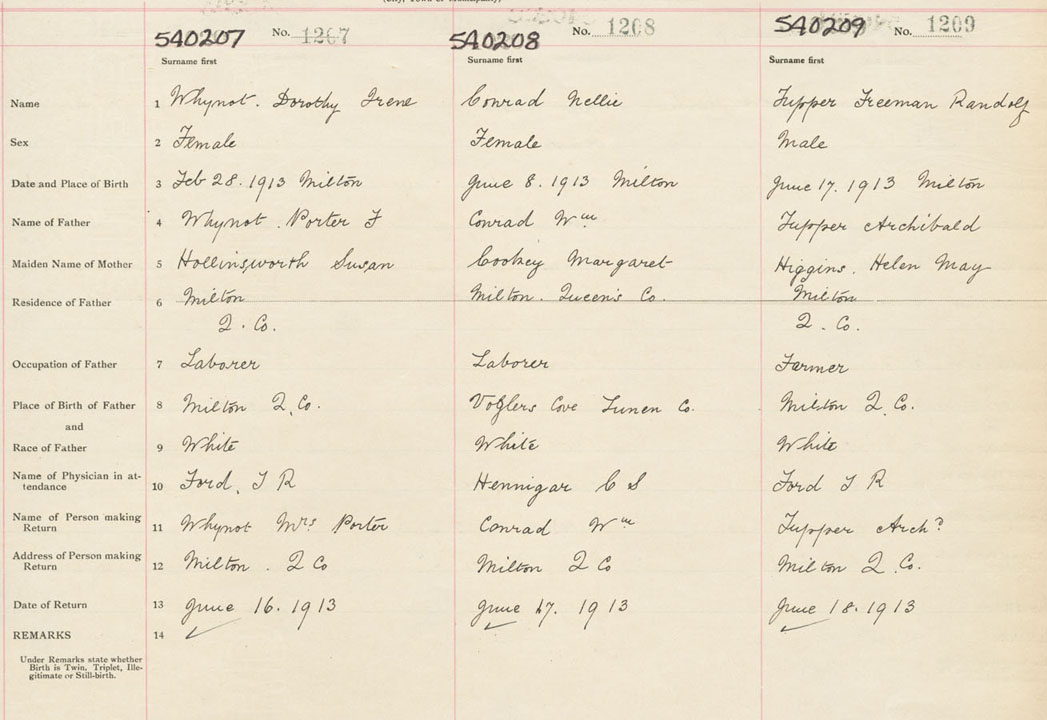 (City, Town or Municipality)
540207 No. 1207 540208 No. 1208 540209 No. 1209
Surname first Surname first Surname first
Name 1 Whynot. Dorothy Irene Conrad Nellie Tupper Freeman Randolf
Sex 2 Female Female Male
Date and Place of Birth 3 Feb 28. 1913 Milton June 8. 1913 Milton June 17. 1913 Milton
Name of Father 4 Whynot. Porter F Conrad Wm Tupper Archibald
Maiden Name of Mother 5 Hollinsworth Susan Cookey Margaret Higgins. Helen May
Residence of Father 6 Milton Milton. Queen's Co. Milton
Q. Co. Q. Co.
Occupation of Father 7 Laborer Laborer Farmer
Place of Birth of Father 8 Milton Q. Co. Voglers Cove Lunen Co. Milton Q. Co.
and
Race of Father 9 White White White
Name of Physician in at-
tendance 10 Ford, J R Hennigar C S Ford J R
Name of Person making
Return 11 Whynot Mrs Porter Conrad Wm Tupper Archd
Address of Person making
Return 12 Milton. Q Co Milton Q Co Milton Q. Co.
Date of Return 13 June 16. 1913 June 17. 1913 June 18. 1913
REMARKS 14
Under Remarks state whether
Birth is Twin, Triplet, Ille-
gitimate or Still-birth.